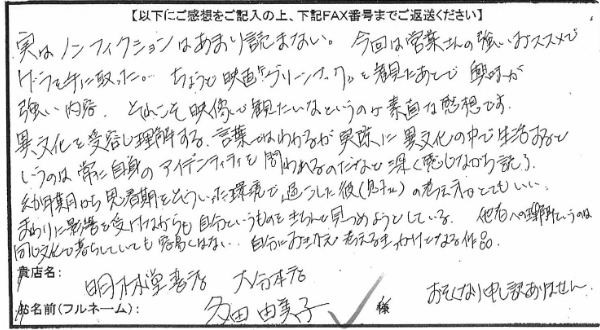 【以下にご感想をご記入の上、下記FAX番号までご返送ください】
実はノンフィクションはあまり読まない。今回は営業さんの強いおススメで
ゲラを手に取った。ちょうど映画『グリーンブック』を観たあとで興味が
強い内容。それこそ映像で観たいなというのが素直な感想です。
異文化を受容し理解する。言葉ではわかるが実際に異文化の中で生活すると
いうのは常に自身のアイデンティティを問われるのだなと深く感じながら読了。
幼少期から思春期をそういった環境で過ごした彼(息子さん)の考え方がとてもいい。
まわりに影響を受けながらも自分というものをきちんと見つめようとしている。他者への理解というのは
同じ文化で暮らしていても容易くはない。自分におきかえ考えるきっかけとなる作品。
貴店名: 明林堂書店 大分本店
お名前(フルネーム): 多田由美子 様 おそくなり申し訳ありません。